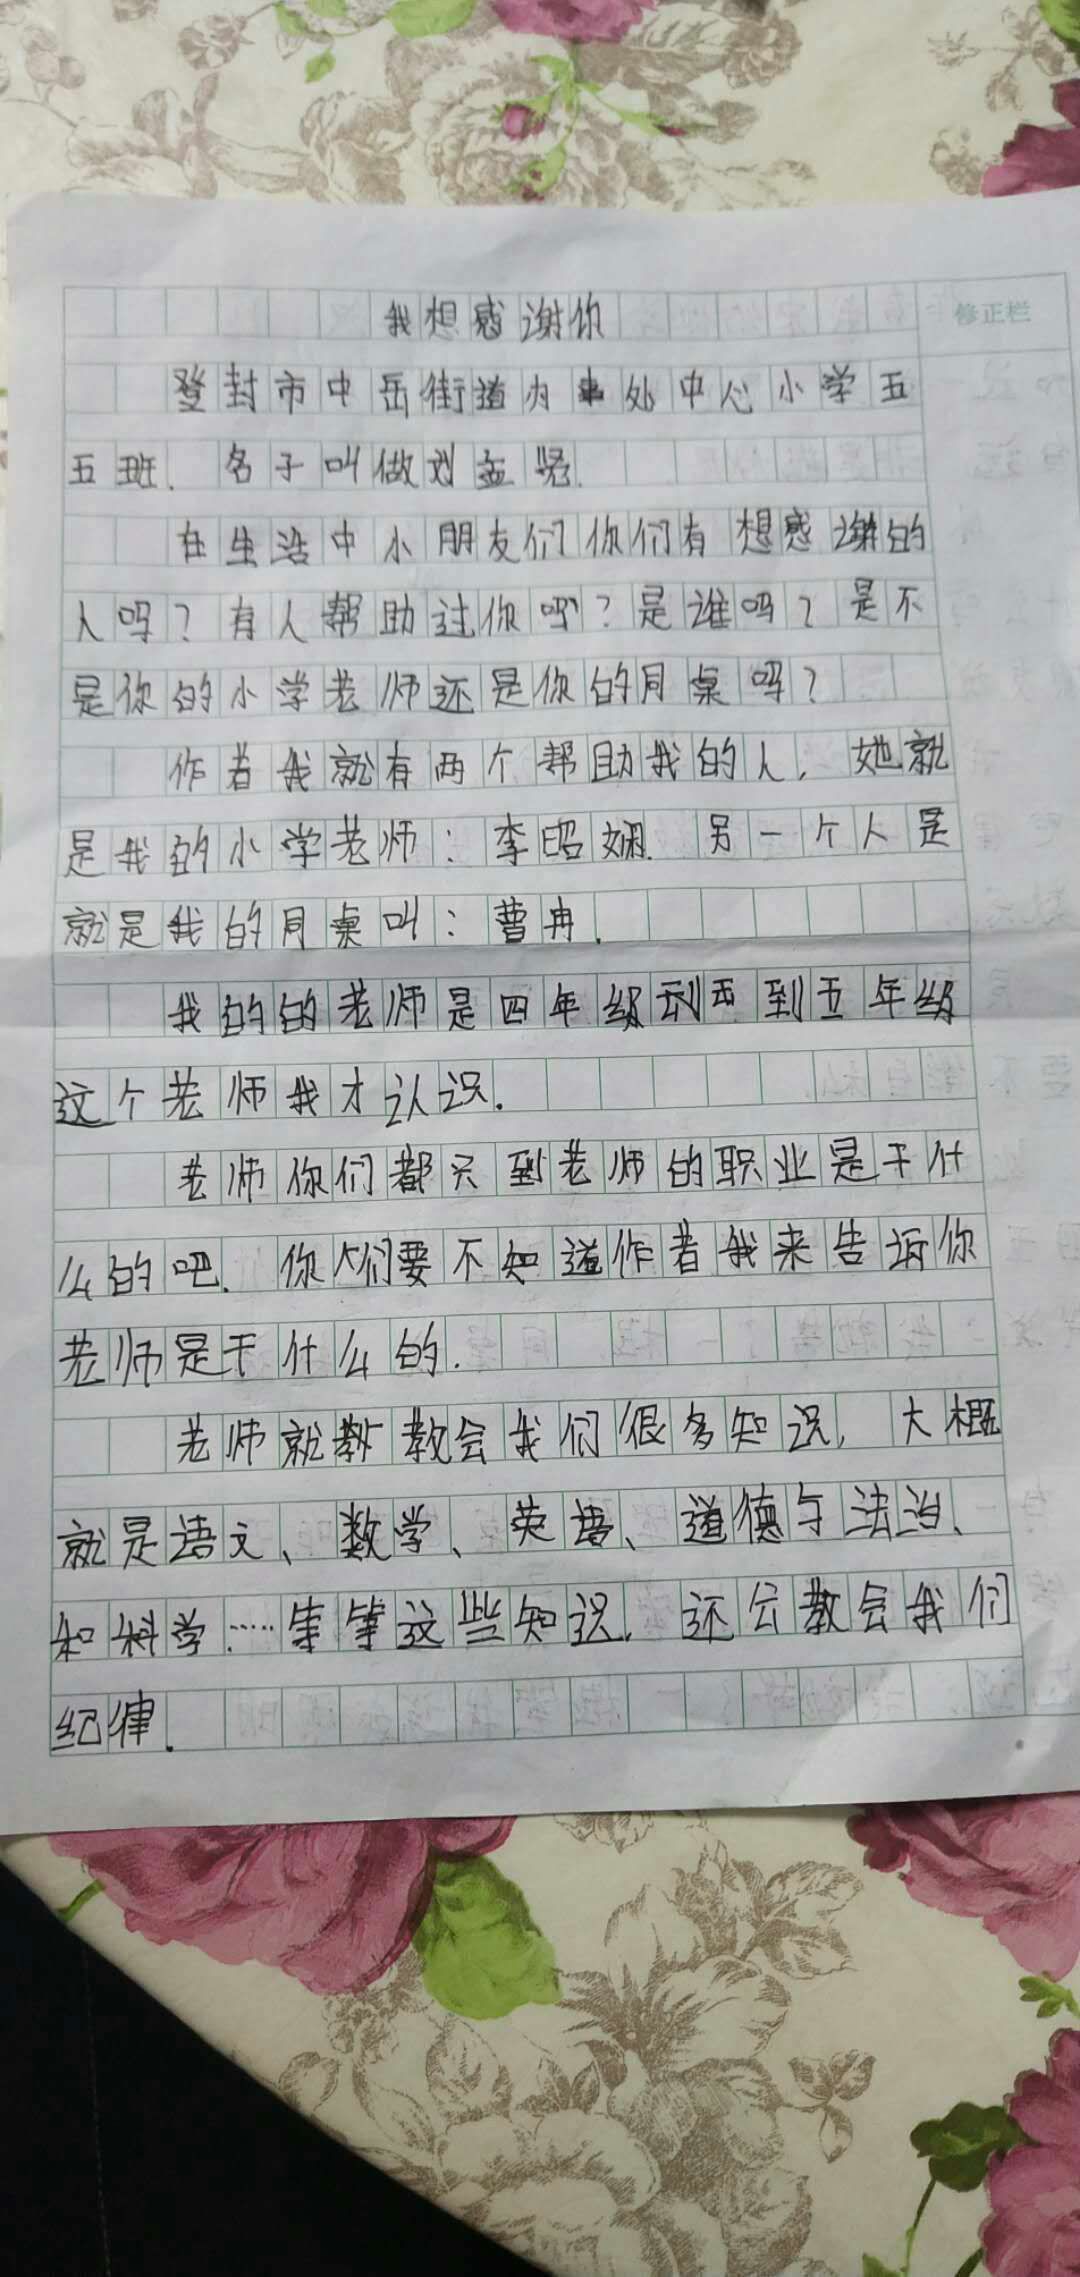 我想感谢你
修正栏
登封市中岳街道办事处中心小学五
五班. 名子叫做刘孟贤.
在生活中小朋友们你们有想感谢的
人吗？有人帮助过你吗？是谁吗？是不
是你的小学老师还是你的同桌吗？
作者我就有两个帮助我的人, 她就
是我的小学老师：李昭娴. 另一个人是
就是我的同桌叫：曹冉.
我的的老师是四年级到五到五年级
这个老师我才认识.
老师你们都只到老师的职业是干什
么的吧. 你们要不知道作者我来告诉你
老师是干什么的.
老师就教教会我们很多知识, 大概
就是语文、数学、英语、道德与法治、
和科学……等等这些知识, 还会教会我们
纪律.